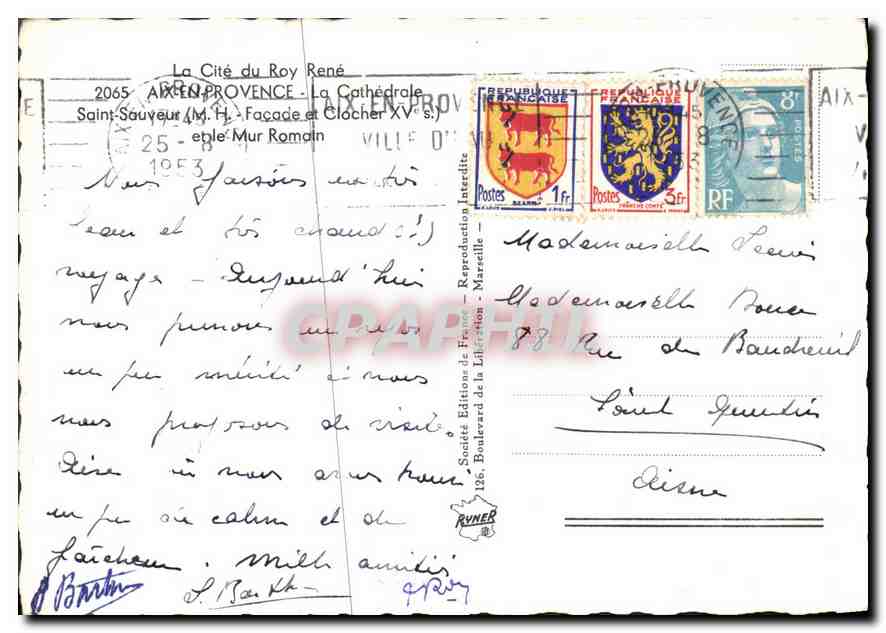 La Cité du Roy René
2065 AIX-EN-PROVENCE - La Cathédrale
Saint-Sauveur (M. H. - Façade et Clocher XVᵉ s.)
et le Mur Romain
25-8
1953
AIX-EN-PROVENCE
VILLE D'
AIX-
REPUBLIQUE FRANÇAISE
Postes 1Fr
BEARN
REPUBLIQUE FRANÇAISE
Postes 3Fr
FRANCHE COMTE
8F
POSTES
RF
Nous faisons un très
beau et très chaud (!)
voyage - Aujourd'hui
nous prenons un repos
un peu mérité et nous
nous proposons de visiter
Aix où nous avons trouvé
un peu de calme et de
fraîcheur. Mille amitiés
Société Editions de France - Reproduction Interdite
126, Boulevard de la Libération - Marseille -
RYNER
Mademoiselle
Mademoiselle
88 Rue de Baudreuil
Saint Quentin
Aisne
CPAPHIL